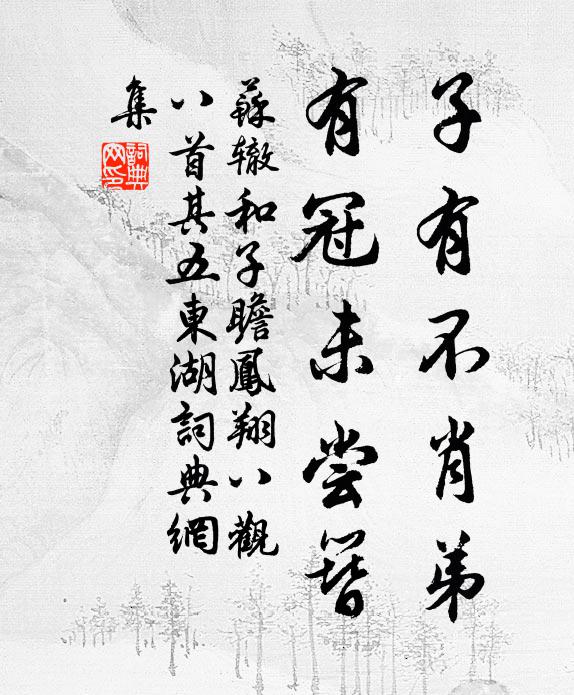 子有不肖弟
有冠未尝簪
蘇辙和子瞻鳳翔八觀
八首其五東湖詞典網
集
詞典
网印